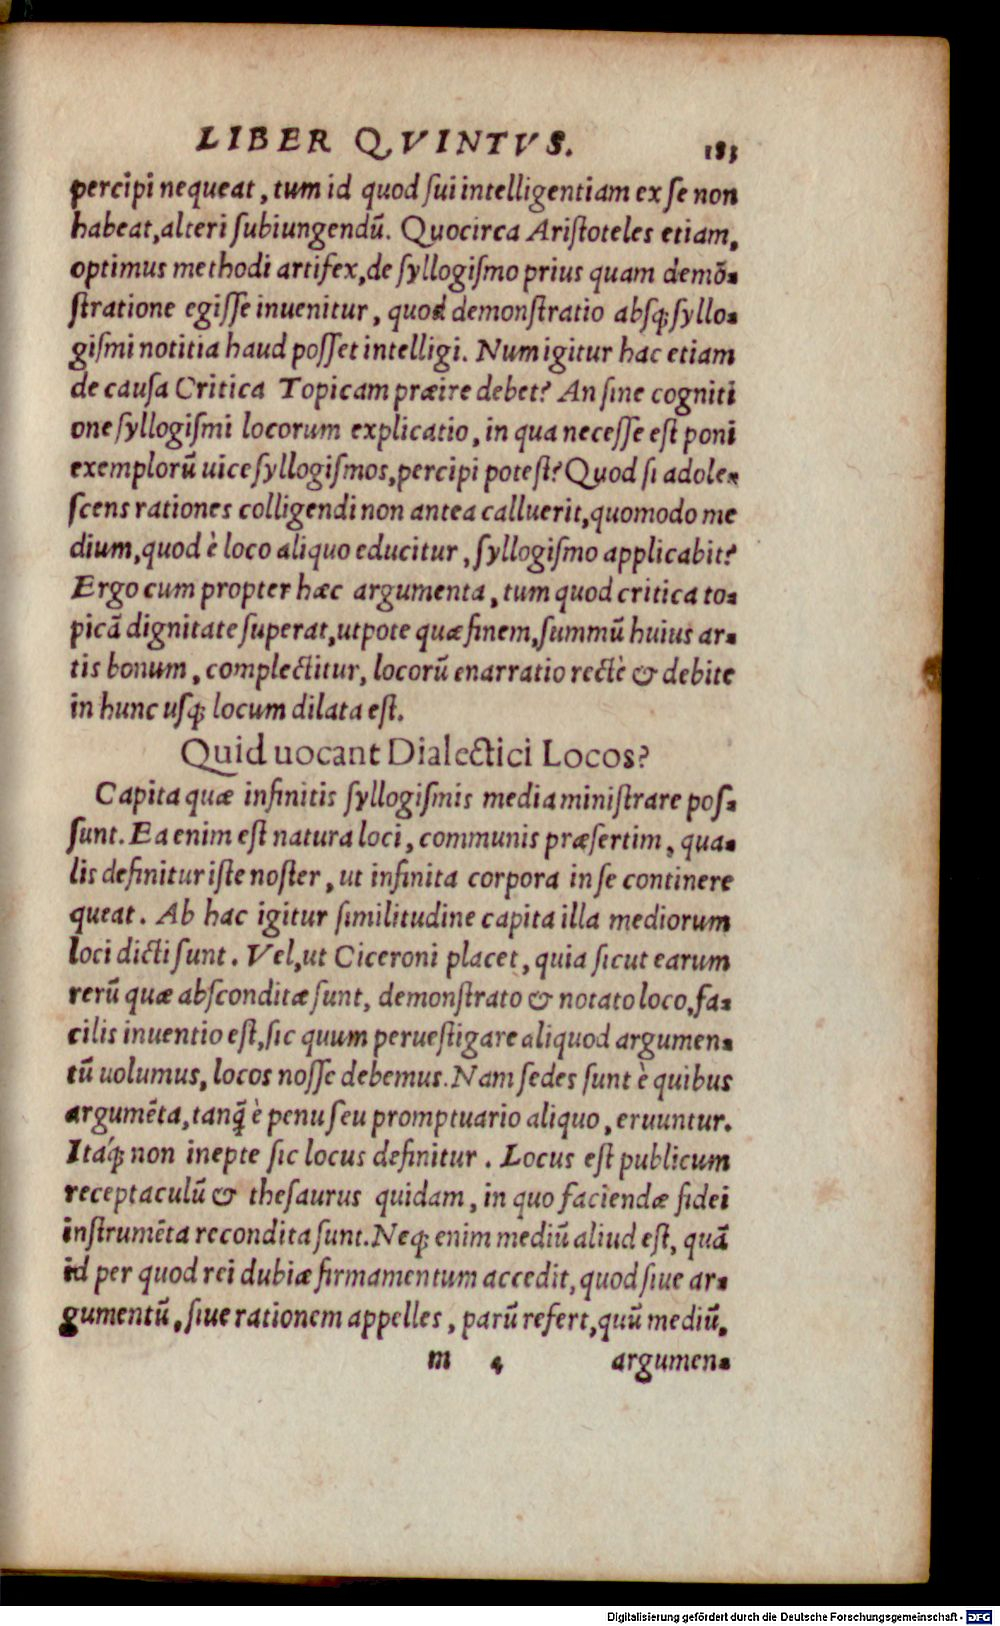 LIBER QVINTVS. 183
percipi nequeat, tum id quod ſui intelligentiam ex ſe non
habeat, alteri ſubiungendū. Quocirca Ariſtoteles etiam,
optimus methodi artifex, de ſyllogiſmo prius quam demō-
ſtratione egiſſe inuenitur, quod demonſtratio abſq; ſyllo-
giſmi notitia haud poſſet intelligi. Num igitur hac etiam
de cauſa Critica Topicam præire debet? An ſine cogniti
one ſyllogiſmi locorum explicatio, in qua neceſſe eſt poni
exemplorū uice ſyllogiſmos, percipi poteſt? Quod ſi adole-
ſcens rationes colligendi non antea calluerit, quomodo me
dium, quod è loco aliquo educitur, ſyllogiſmo applicabit?
Ergo cum propter hæc argumenta, tum quod critica to-
picā dignitate ſuperat, utpote quæ finem, ſummū huius ar-
tis bonum, complectitur, locorū enarratio rectè & debite
in hunc uſq; locum dilata eſt.
Quid uocant Dialectici Locos?
Capita quæ infinitis ſyllogiſmis media miniſtrare poſ-
ſunt. Ea enim eſt natura loci, communis præſertim, qua-
lis definitur iſte noſter, ut infinita corpora in ſe continere
queat. Ab hac igitur ſimilitudine capita illa mediorum
loci dicti ſunt. Vel, ut Ciceroni placet, quia ſicut earum
rerū quæ abſconditæ ſunt, demonſtrato & notato loco, fa-
cilis inuentio eſt, ſic quum perueſtigare aliquod argumen-
tū uolumus, locos noſſe debemus. Nam ſedes ſunt è quibus
argumēta, tanq̃ è penu ſeu promptuario aliquo, eruuntur.
Itáq; non inepte ſic locus definitur. Locus eſt publicum
receptaculū & theſaurus quidam, in quo faciendæ fidei
inſtrumēta recondita ſunt. Neq; enim mediū aliud eſt, quā
id per quod rei dubiæ firmamentum accedit, quod ſiue ar-
gumentū, ſiue rationem appelles, parū refert, quū mediū,
m 4 argumen-
Digitalisierung gefördert durch die Deutsche Forschungsgemeinschaft - DFG